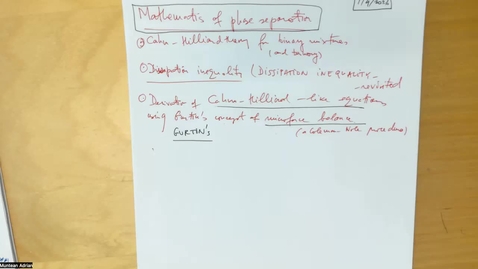 Mathematics of phase separation
Cahn-Hilliard theory for binary mixtures
(and ternary)
Dissipation inequality (DISSIPATION INEQUALITY -
revisited
Derivation of Cahn-Hilliard-like equations
using Gurtin's concept of microforce balance
GURTIN'S (a Coleman-Noll procedure)
Muntean Adrian